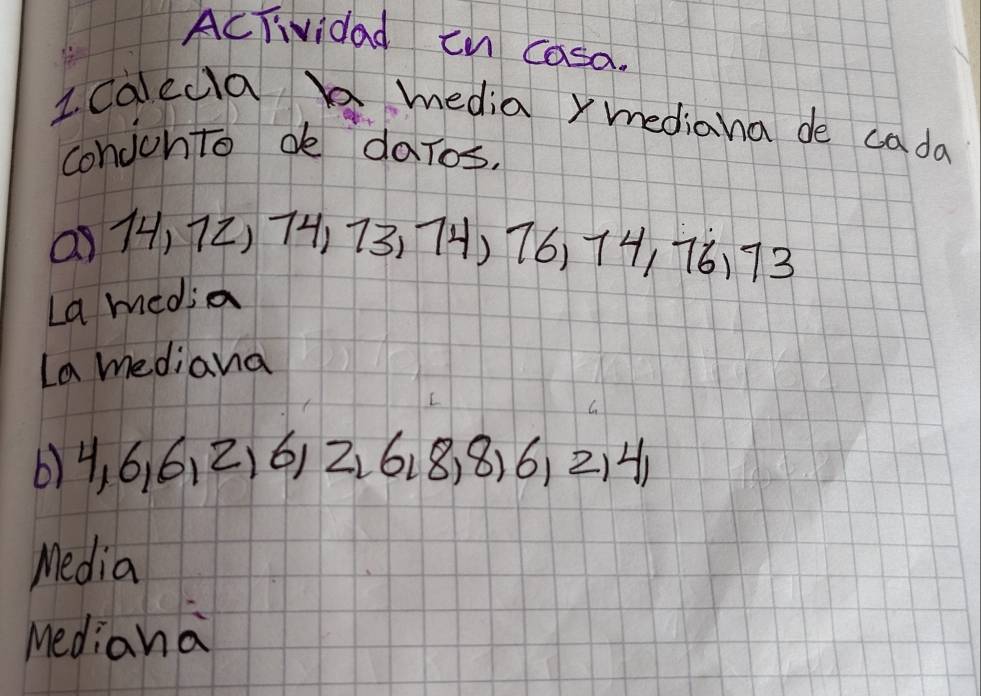 ACTividad en casa.
1. Calcula la media y mediana de cada
conjunto de datos.
a) 14, 12, 14, 13, 14, 16, 14, 16, 13
La media
La mediana
b) 4, 6, 6, 2, 6, 2, 6, 8, 8, 6, 2, 4,
Media
Mediana